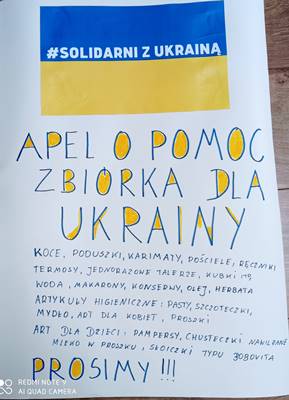 #SOLIDARNI Z UKRAINĄ
APEL O POMOC
ZBIÓRKA DLA
UKRAINY
KOCE, PODUSZKI, KARIMATY, POŚCIELE, RĘCZNIKI
TERMOSY, JEDNORAZOWE TALERZE, KUBKI ITP
WODA, MAKARONY, KONSERWY, OLEJ, HERBATA
ARTYKUŁY HIGIENICZNE: PASTY, SZCZOTECZKI,
MYDŁO, ART DLA KOBIET, PROSZKI
ART DLA DZIECI: PAMPERSY, CHUSTECZKI NAWILŻANE
MLEKO W PROSZKU, SŁOICZKI TYPU BOBOVITA
PROSIMY!!!
REDMI NOTE 9
AI QUAD CAMERA